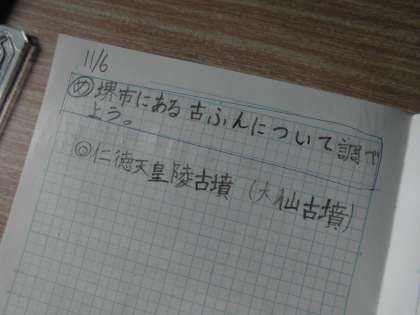 11/6
め 堺市にある古ふんについて調べ
よう。
◎仁徳天皇陵古墳(大仙古墳)